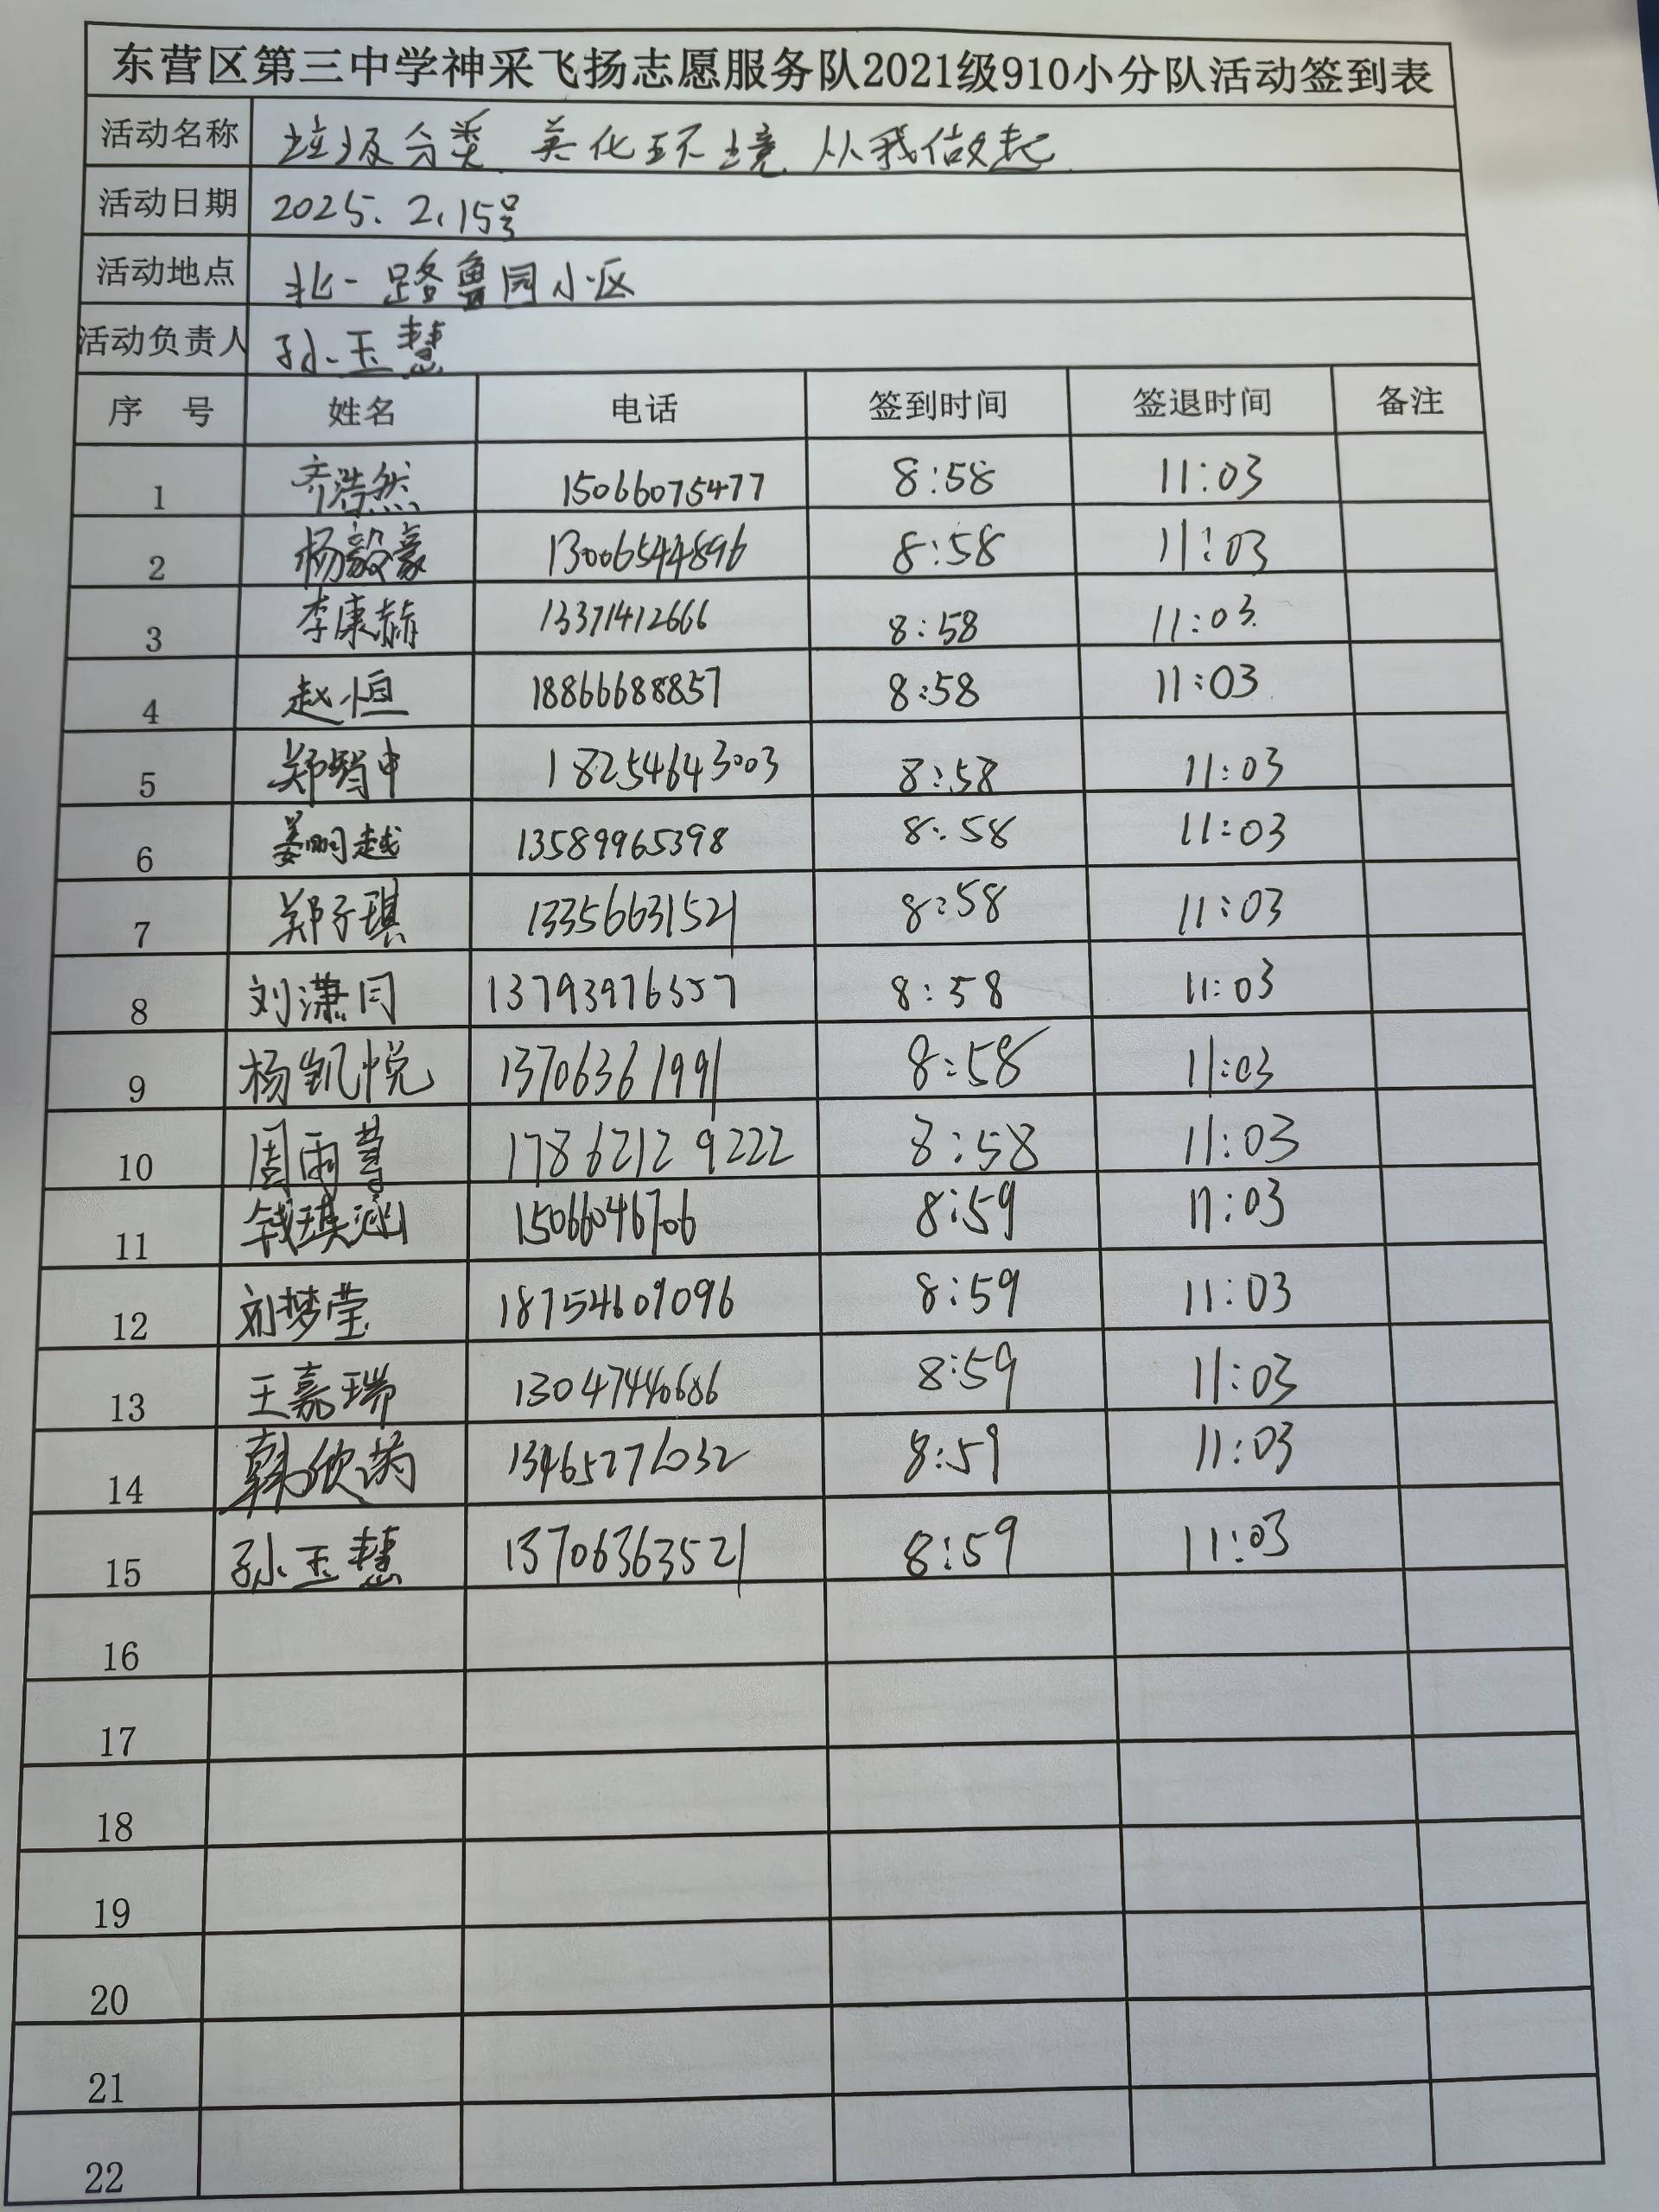 东营区第三中学神采飞扬志愿服务队2021级910小分队活动签到表
活动名称 垃圾分类 美化环境 从我做起
活动日期 2025.2.15号
活动地点 北一路鲁园小区
活动负责人 孙玉慧
序号 姓名 电话 签到时间 签退时间 备注
1 齐浩然 15066075477 8:58 11:03
2 杨毅豪 13006544896 8:58 11:03
3 李康赫 13371412666 8:58 11:03
4 赵恒 18866688857 8:58 11:03
5 郑智中 18254643003 8:58 11:03
6 姜明越 13589965398 8:58 11:03
7 郑子琪 13356631521 8:58 11:03
8 刘潇 8:58 11:03
9 杨凯悦 13706361991 8:58 11:03
10 周雨 17862129222 8:58 11:03
11 钱琪 15066046706 8:59 11:03
12 刘梦莹 18754609096 8:59 11:03
13 王嘉瑞 13047440686 8:59 11:03
14 韩欣芮 13465276032 8:59 11:03
15 孙玉慧 13706363521 8:59 11:03
16
17
18
19
20
21
22